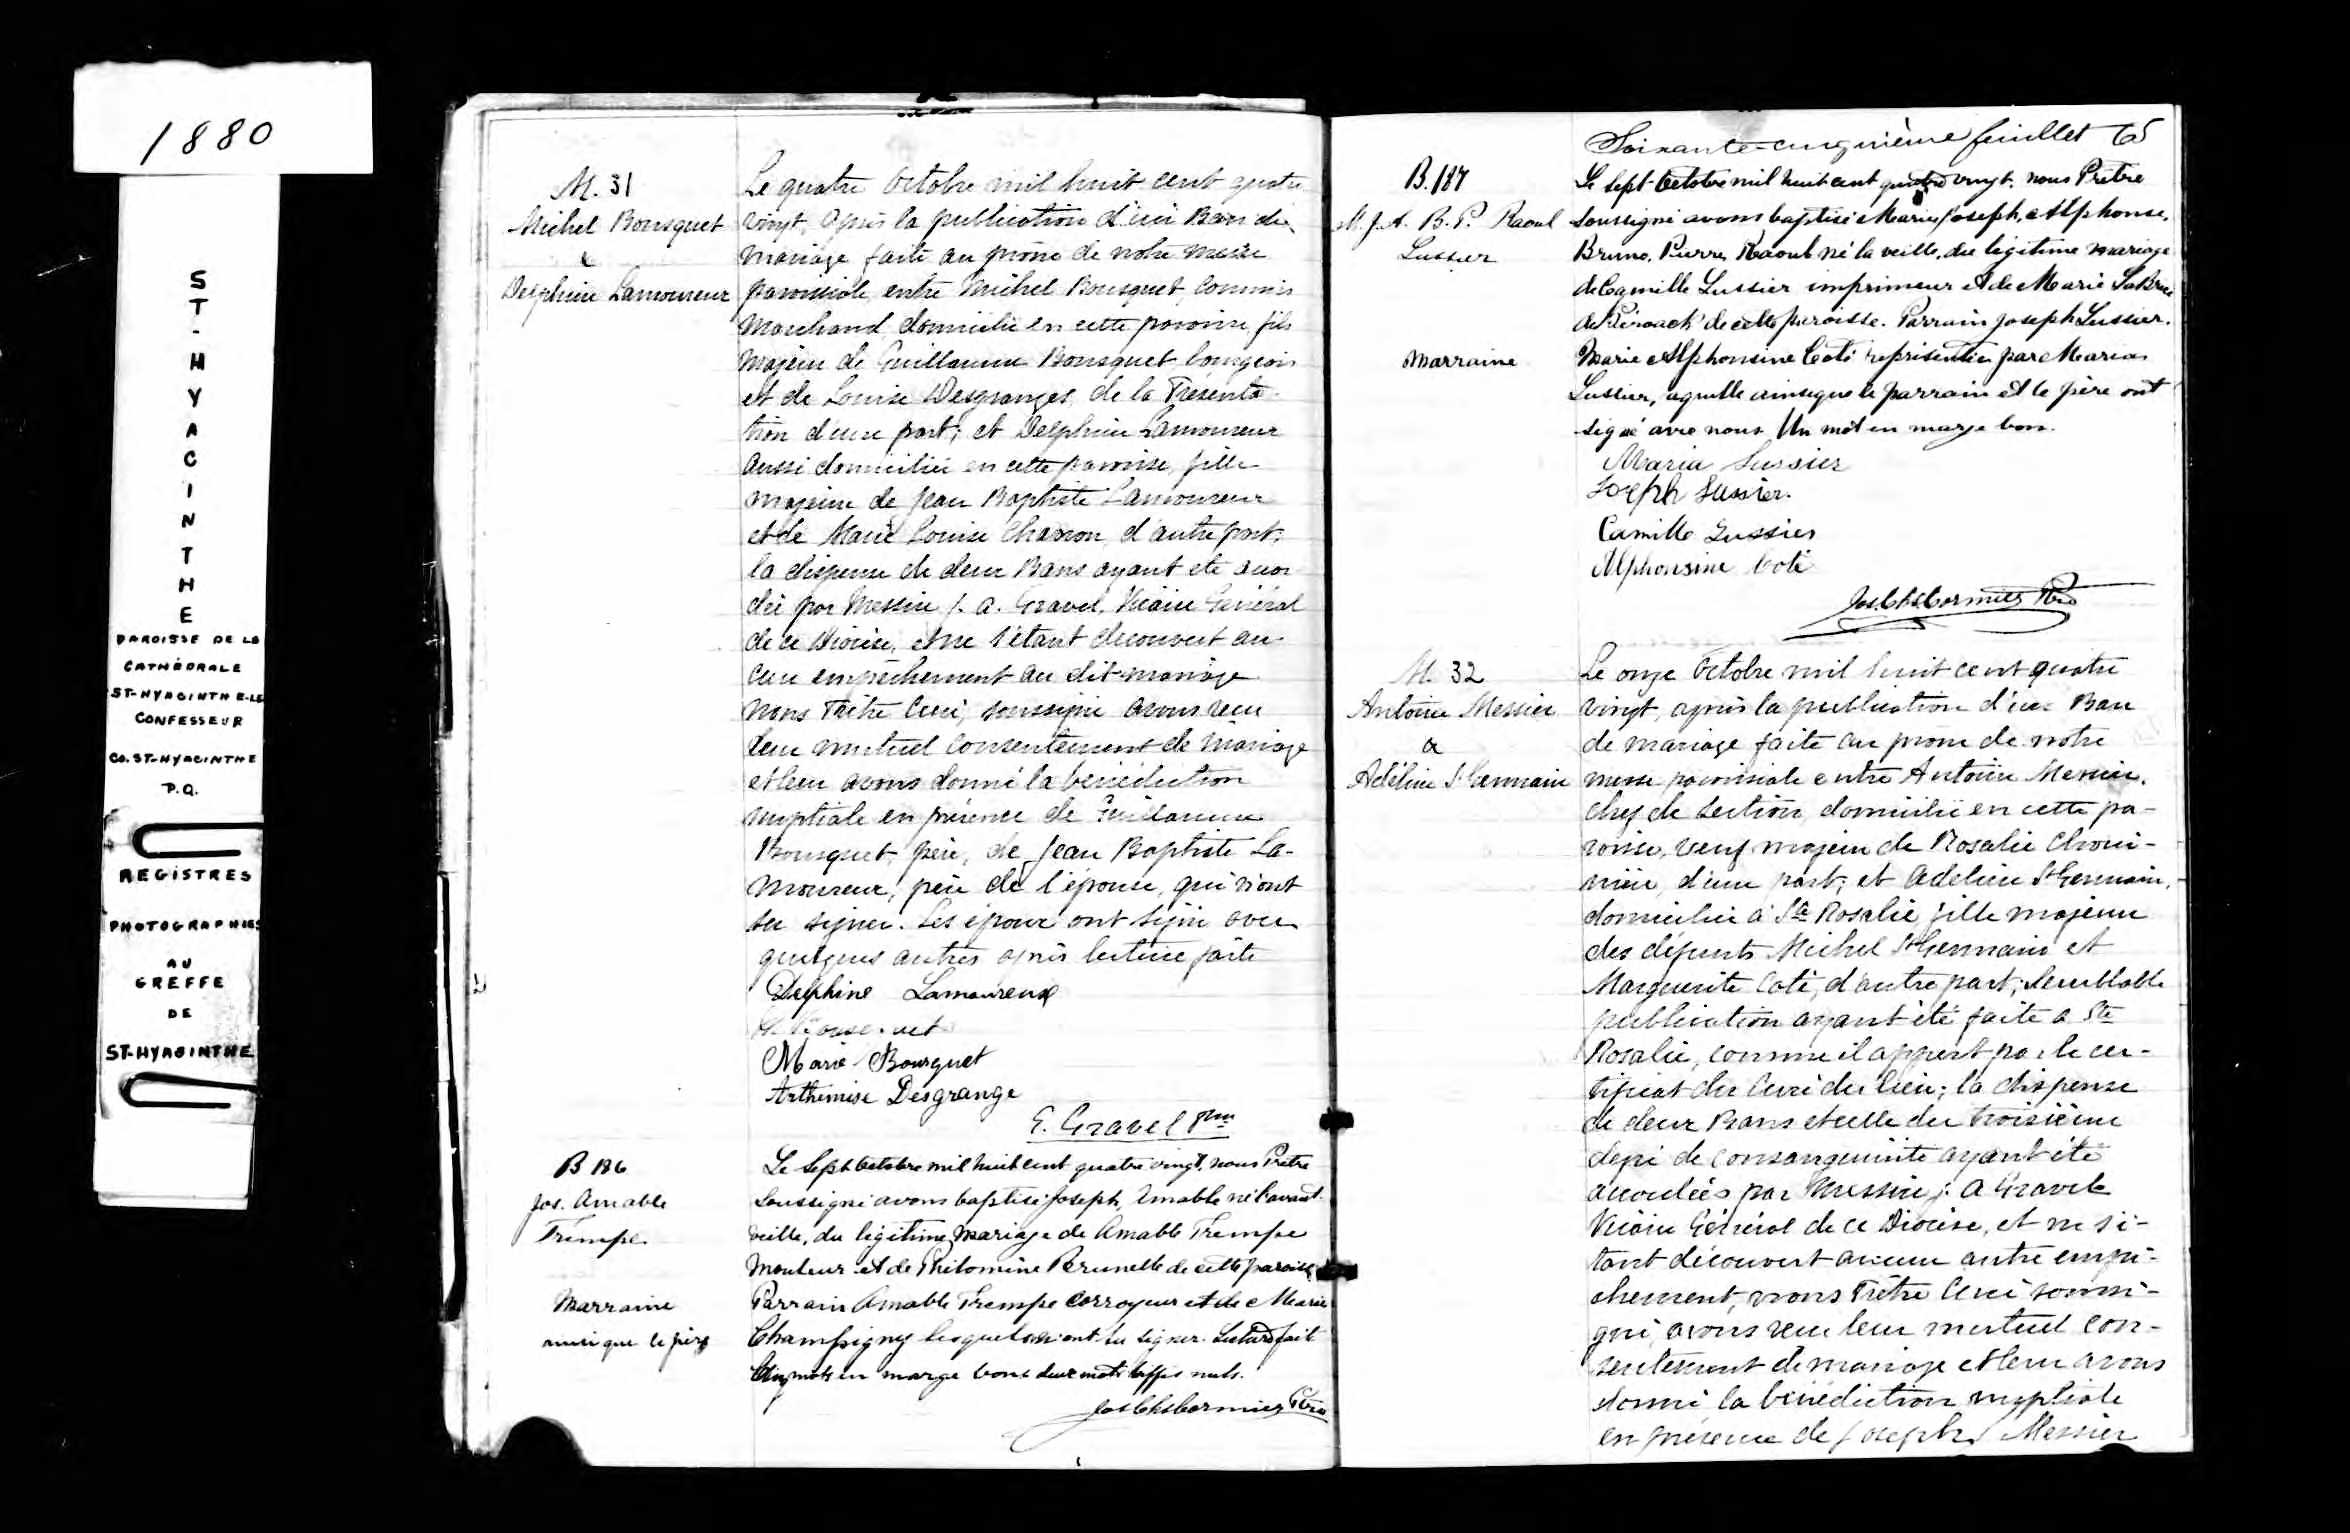 1880
ST-HYACINTHE
PAROISSE DE LA
CATHÉDRALE
ST-HYACINTHE-LE
CONFESSEUR
CO. ST-HYACINTHE
P.Q.
REGISTRES
PHOTOGRAPHIES
AU
GREFFE
DE
ST-HYACINTHE
M. 31
Michel Bousquet
&
Delphine Lamoureux
Le quatre Octobre mil huit cent quatre
vingt, après la publication d'un Ban de
mariage faite au prône de notre messe
paroissiale entre Michel Bousquet, commis
marchand domicilié en cette paroisse, fils
majeur de Guillaume Bousquet bourgeois
et de Louise Desgranges, de la Présenta-
tion d'une part; et Delphine Lamoureux
aussi domiciliée en cette paroisse, fille
majeure de Jean Baptiste Lamoureux
et de Marie Louise Charron, d'autre part;
la dispense de deux Bans ayant été accor
dée par Messire J. A. Gravel, Vicaire Général
de ce Diocèse, et ne s'étant découvert au-
cun empêchement au dit mariage
nous Prêtre Curé, soussigné avons reçu
leur mutuel consentement de mariage
et leur avons donné la bénédiction
nuptiale en présence de Guillaume
Bousquet, père, de Jean Baptiste La-
moureux, père de l'épouse, qui n'ont
su signer. Les époux ont signé avec
quelques autres après lecture faite
Delphine Lamoureux
Marie Bousquet
Arthémise Desgrange
E. Gravel Ptre
B 186
Jos. Amable
Trempe
Marraine
ainsi que le père
Le Sept Octobre mil huit cent quatre vingt, nous Prêtre
soussigné avons baptisé Joseph, Amable né l'avant-
veille, du légitime mariage de Amable Trempe
Mouleur et de Philomine Brunelle de cette paroisse
Parrain Amable Trempe corroyeur et de Marie
Champigny lesquels n'ont su signer. Lecture fait
Cinq mots en marge bons deux mots biffés nuls.
Jos Chs Cormier Ptre
Soixante-cinquième feuillet 65
B. 187
M. J. A. B. P. Raoul
Lussier
Marraine
Le sept Octobre mil huit cent quatre vingt, nous Prêtre
soussigné avons baptisé Marie, Joseph, Alphonse,
Bruno, Pierre, Raoul né la veille, du légitime mariage
de Camille Lussier imprimeur et de Marie LaBruè
de Kéroack de cette paroisse. Parrain Joseph Lussier.
Marie Alphonsine Coté représentée par Maria
Lussier, laquelle ainsi que le parrain et le père ont
signé avec nous Un mot en marge bon.
Maria Lussier
Joseph Lussier.
Camille Lussier
Alphonsine Coté
Jos. Chs. Cormier Ptre
M. 32
Antoine Messier
&
Adéline St Germain
Le onze Octobre mil huit cent quatre
vingt, après la publication d'un Ban
de mariage faite au prone de notre
messe paroissiale entre Antoine Messier,
chef de section, domicilié en cette pa-
roisse, veuf majeur de Rosalie
d'une part; et Adeline St Germain,
domiciliée à Ste Rosalie fille majeure
des défunts Michel St Germain et
Marguerite Coté, d'autre part; semblable
publication ayant été faite a Ste
Rosalie, comme il appert par le cer-
tificat du Curé du lieu; la dispense
de deux Bans et celle du troisième
degré de consanguinité ayant été
accordées par Messire J. A Gravel
Vicaire Général de ce Diocèse, et ne s'é-
tant découvert aucun autre empê-
chement, nous Prêtre Curé soussi-
gné, avons reçu leur mutuel con-
sentement de mariage et leur avons
donné la bénédiction nuptiale
en présence de Joseph Messier